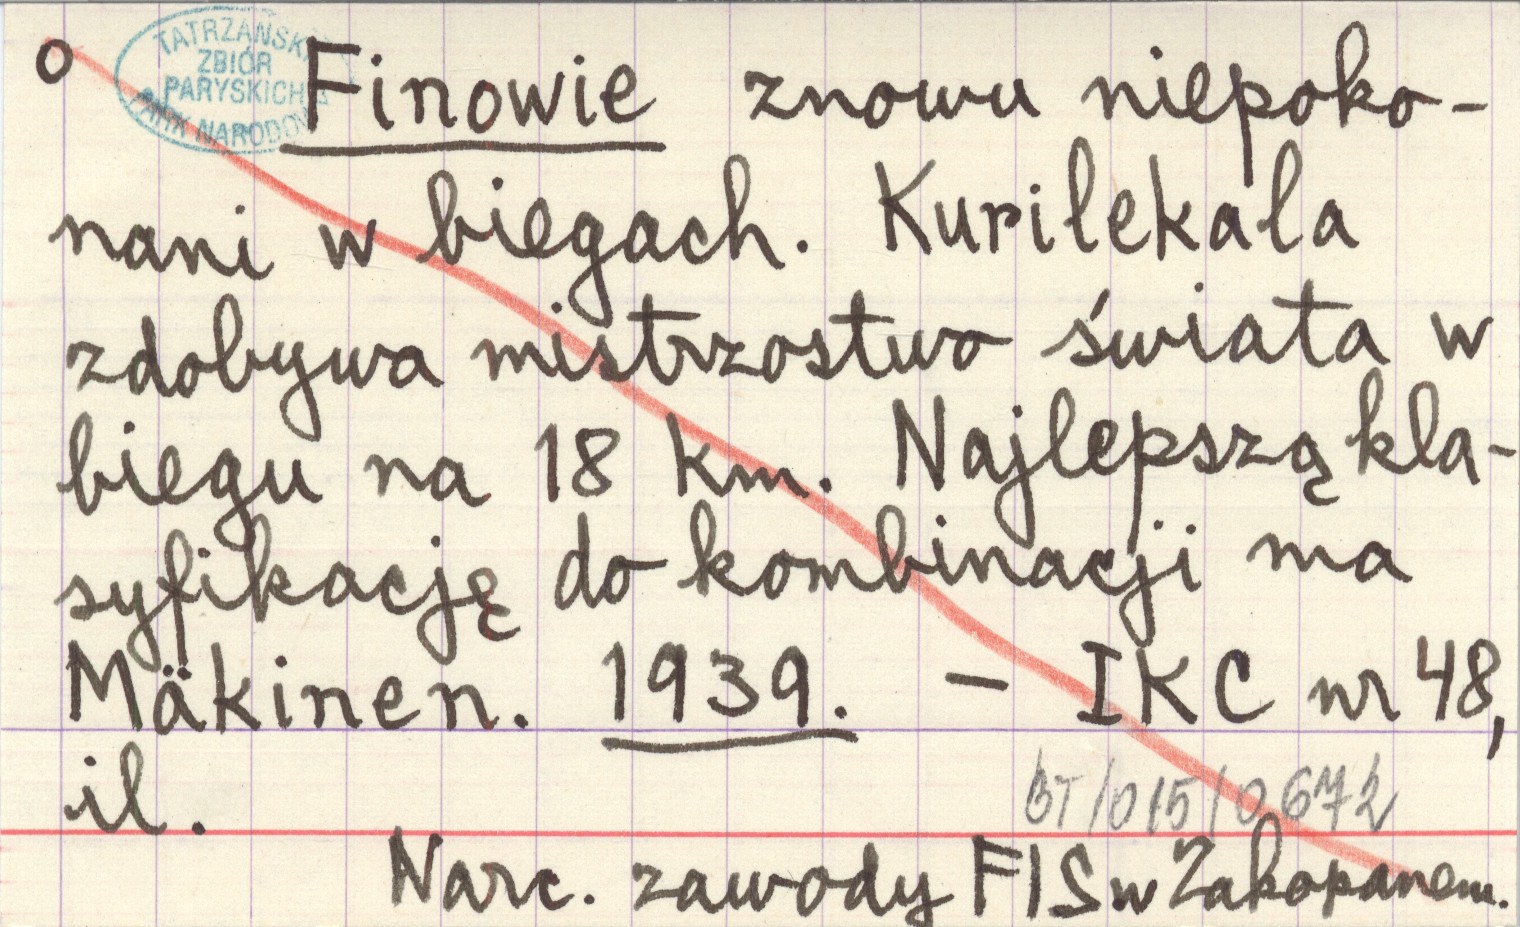 o
TATRZAŃSKI
ZBIÓR
PARYSKICH
PARK NARODOW
Finowie znowu niepoko-
nani w biegach. Kurilekala
zdobywa mistrzostwo świata w
biegu na 18 km. Najlepszą kla-
syfikację do kombinacji ma
Mäkinen. 1939. — IKC nr 48,
il.
BT/015/0672
Narc. zawody FIS w Zakopanem.